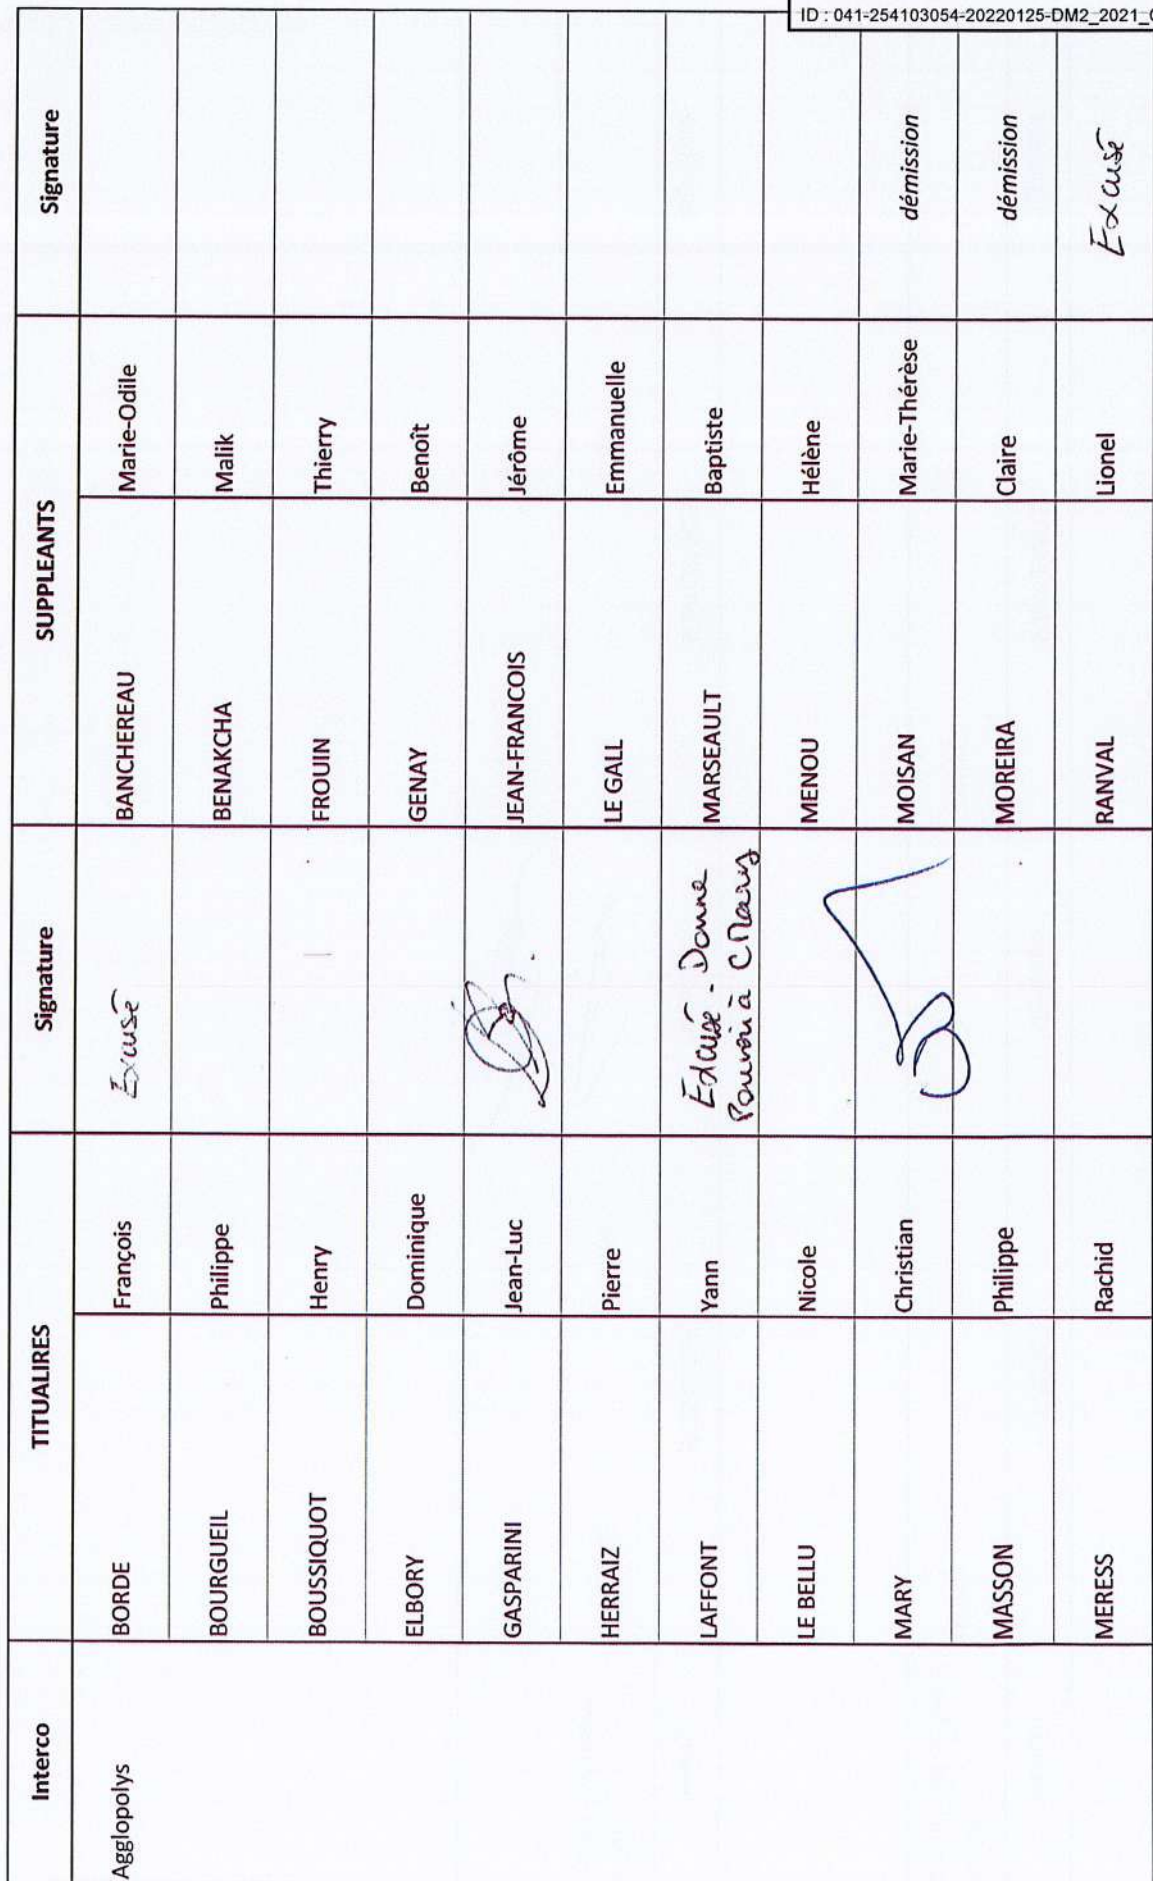 ID : 041-254103054-20220125-DM2_2021_
Interco TITUALIRES Signature SUPPLEANTS Signature
Agglopolys BORDE François Excusé BANCHEREAU Marie-Odile
BOURGUEIL Philippe BENAKCHA Malik
BOUSSIQUOT Henry FROUIN Thierry
ELBORY Dominique GENAY Benoît
GASPARINI Jean-Luc JEAN-FRANCOIS Jérôme
HERRAIZ Pierre LE GALL Emmanuelle
LAFFONT Yann Excusé - Donne
Pouvoir à C Mary MARSEAULT Baptiste
LE BELLU Nicole MENOU Hélène
MARY Christian MOISAN Marie-Thérèse démission
MASSON Philippe MOREIRA Claire démission
MERESS Rachid RANVAL Lionel Excusé